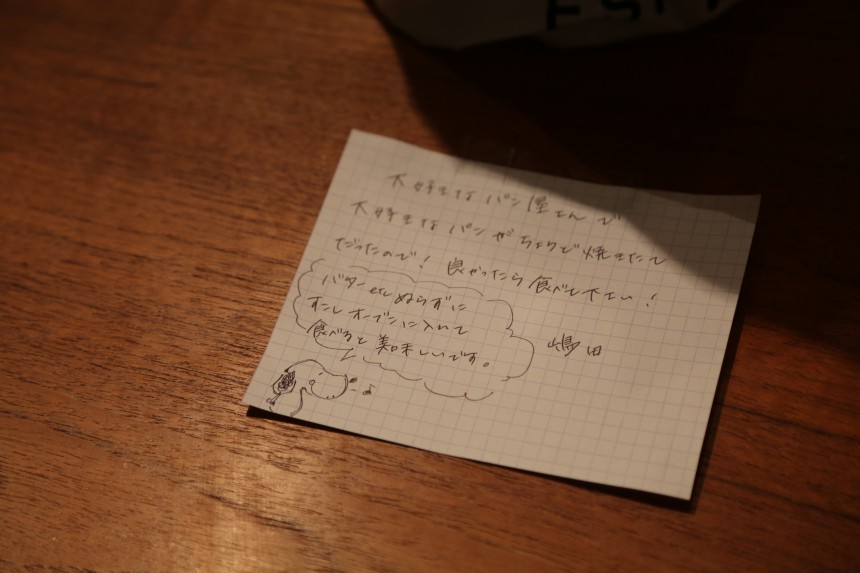 大好きなパン屋さんで
大好きなパンがちょうど焼きたて
だったので！良かったら食べて下さい！
バターetcぬらずに
すこしオーブンに入れて
食べると美味しいです。
嶋田